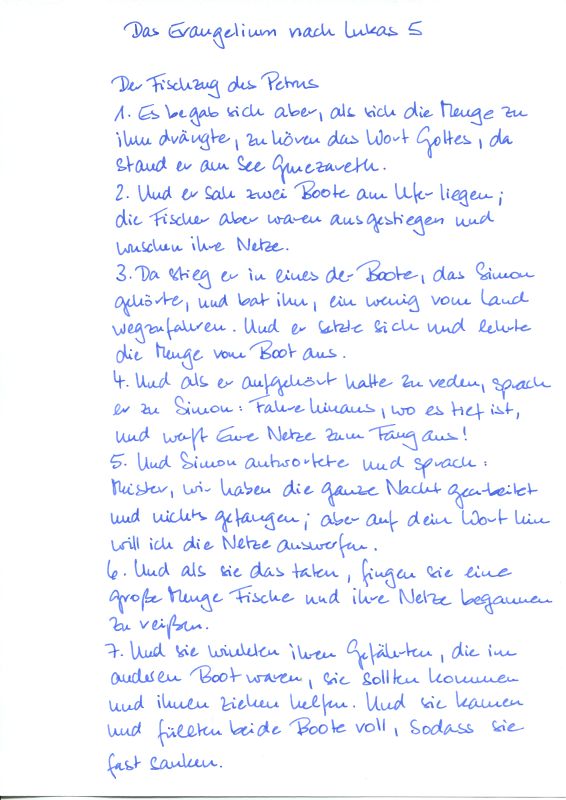 Das Evangelium nach Lukas 5
Der Fischzug des Petrus
1. Es begab sich aber, als sich die Menge zu
ihm drängte, zu hören das Wort Gottes, da
stand er am See Genezareth.
2. Und er sah zwei Boote am Ufer liegen;
die Fischer aber waren ausgestiegen und
wuschen ihre Netze.
3. Da stieg er in eines der Boote, das Simon
gehörte, und bat ihn, ein wenig vom Land
wegzufahren. Und er setzte sich und lehrte
die Menge vom Boot aus.
4. Und als er aufgehört hatte zu reden, sprach
er zu Simon: Fahre hinaus, wo es tief ist,
und werft Eure Netze zum Fang aus!
5. Und Simon antwortete und sprach:
Meister, wir haben die ganze Nacht gearbeitet
und nichts gefangen; aber auf dein Wort hin
will ich die Netze auswerfen.
6. Und als sie das taten, fingen sie eine
große Menge Fische und ihre Netze begannen
zu reißen.
7. Und sie winkten ihren Gefährten, die im
anderen Boot waren, sie sollten kommen
und ihnen ziehen helfen. Und sie kamen
und füllten beide Boote voll, sodass sie
fast sanken.